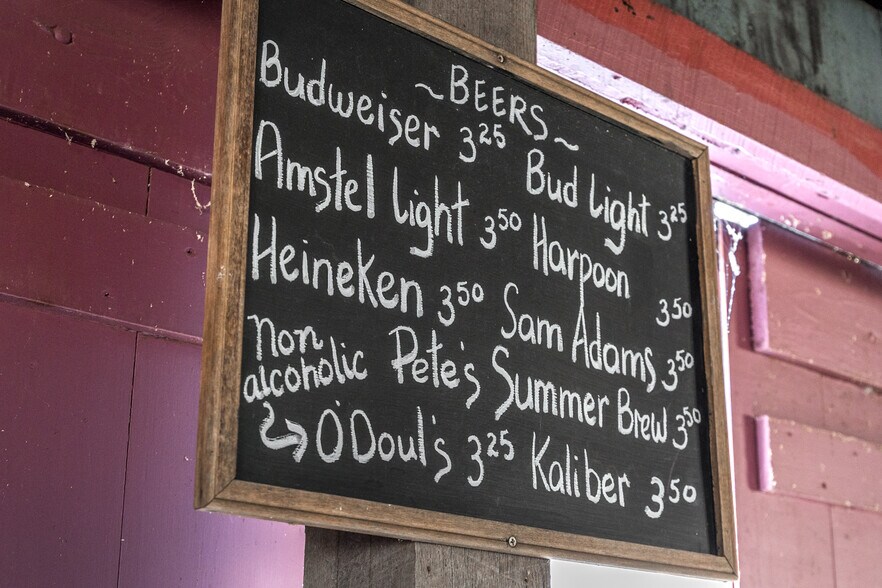 ~ BEERS ~
Budweiser 3 25 Bud Light 3 25
Amstel Light 3 50 Harpoon 3 50
Heineken 3 50 Sam Adams 3 50
Non alcoholic Pete's Summer Brew 3 50
O'Doul's 3 25 Kaliber 3 50